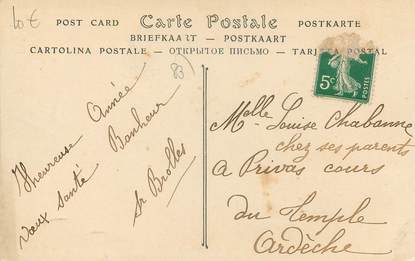 10 €
POST CARD Carte Postale POSTKARTE
BRIEFKAART — POSTKAART
CARTOLINA POSTALE — ОТКРЫТОЕ ПИСЬМО — TARJETA POSTAL
83
5c
POSTES
Heureuse Année
Vœux Santé Bonheur
Sr Brolles
Melle Louise Chabanne
chez ses parents
a Privas cours
du Temple
Ardèche